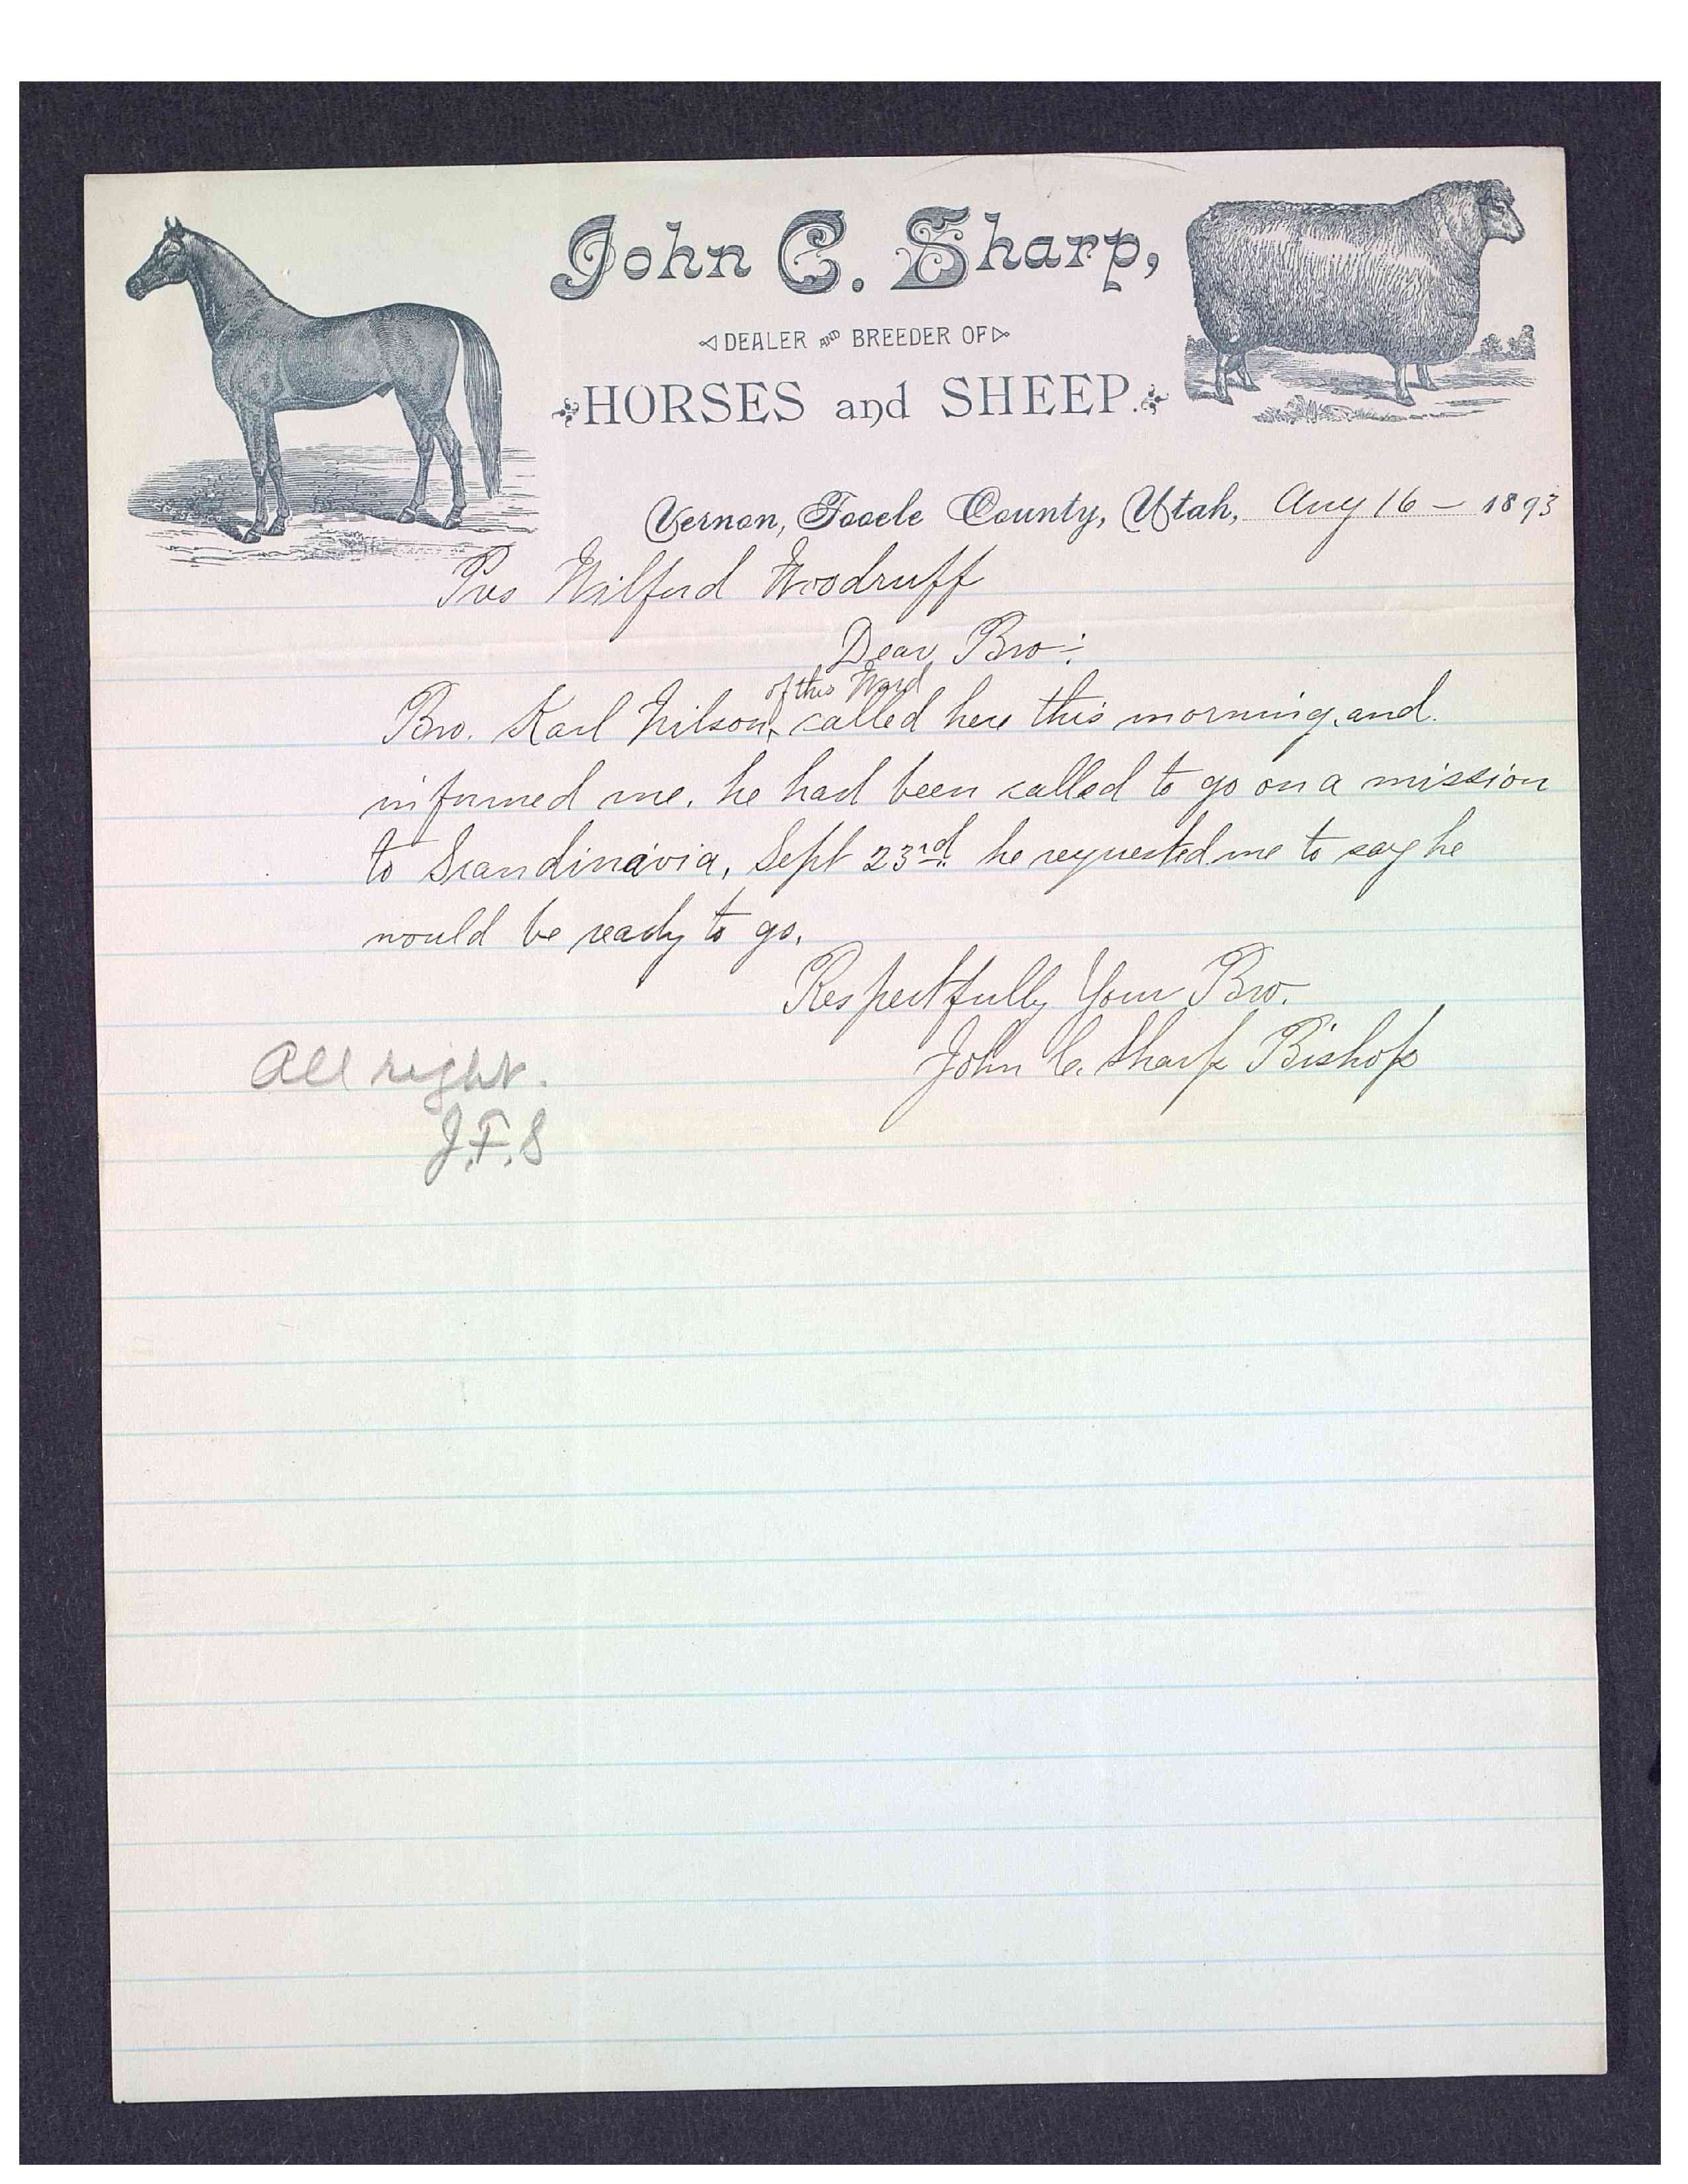 John C. Sharp,
DEALER AND BREEDER OF
HORSES and SHEEP.
Vernon, Tooele County, Utah, Aug 16 – 1893
Pres Wilford Woodruff
Dear Bro:
of this Ward
Bro. Karl Nilson, called here this morning, and
informed me, he had been called to go on a mission
to Scandinavia, Sept 23rd. he requested me to say he
would be ready to go.
Respectfully Your Bro.
John C. Sharp Bishop
All right.
J.F.S